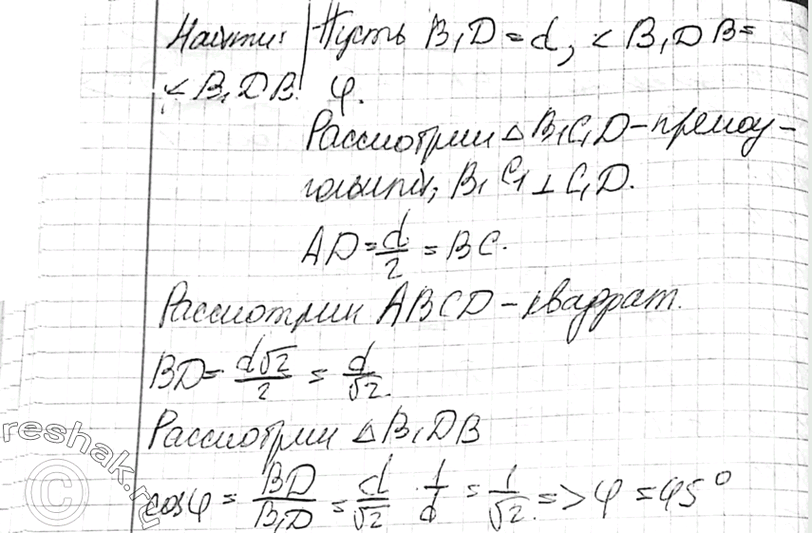 Найти: Пусть B₁D = d, < B₁DB =
< B₁DB. φ.
Рассмотрим △ B₁C₁D - прямоу-
гольный, B₁C₁ ⊥ C₁D.
AD = d/2 = BC.
Рассмотрим ABCD - квадрат.
BD = d√2/2 = d/√2.
Рассмотрим △ B₁DB
cos φ = BD/B₁D = d/√2 · 1/d = 1/√2. => φ = 45°
reshak.ru